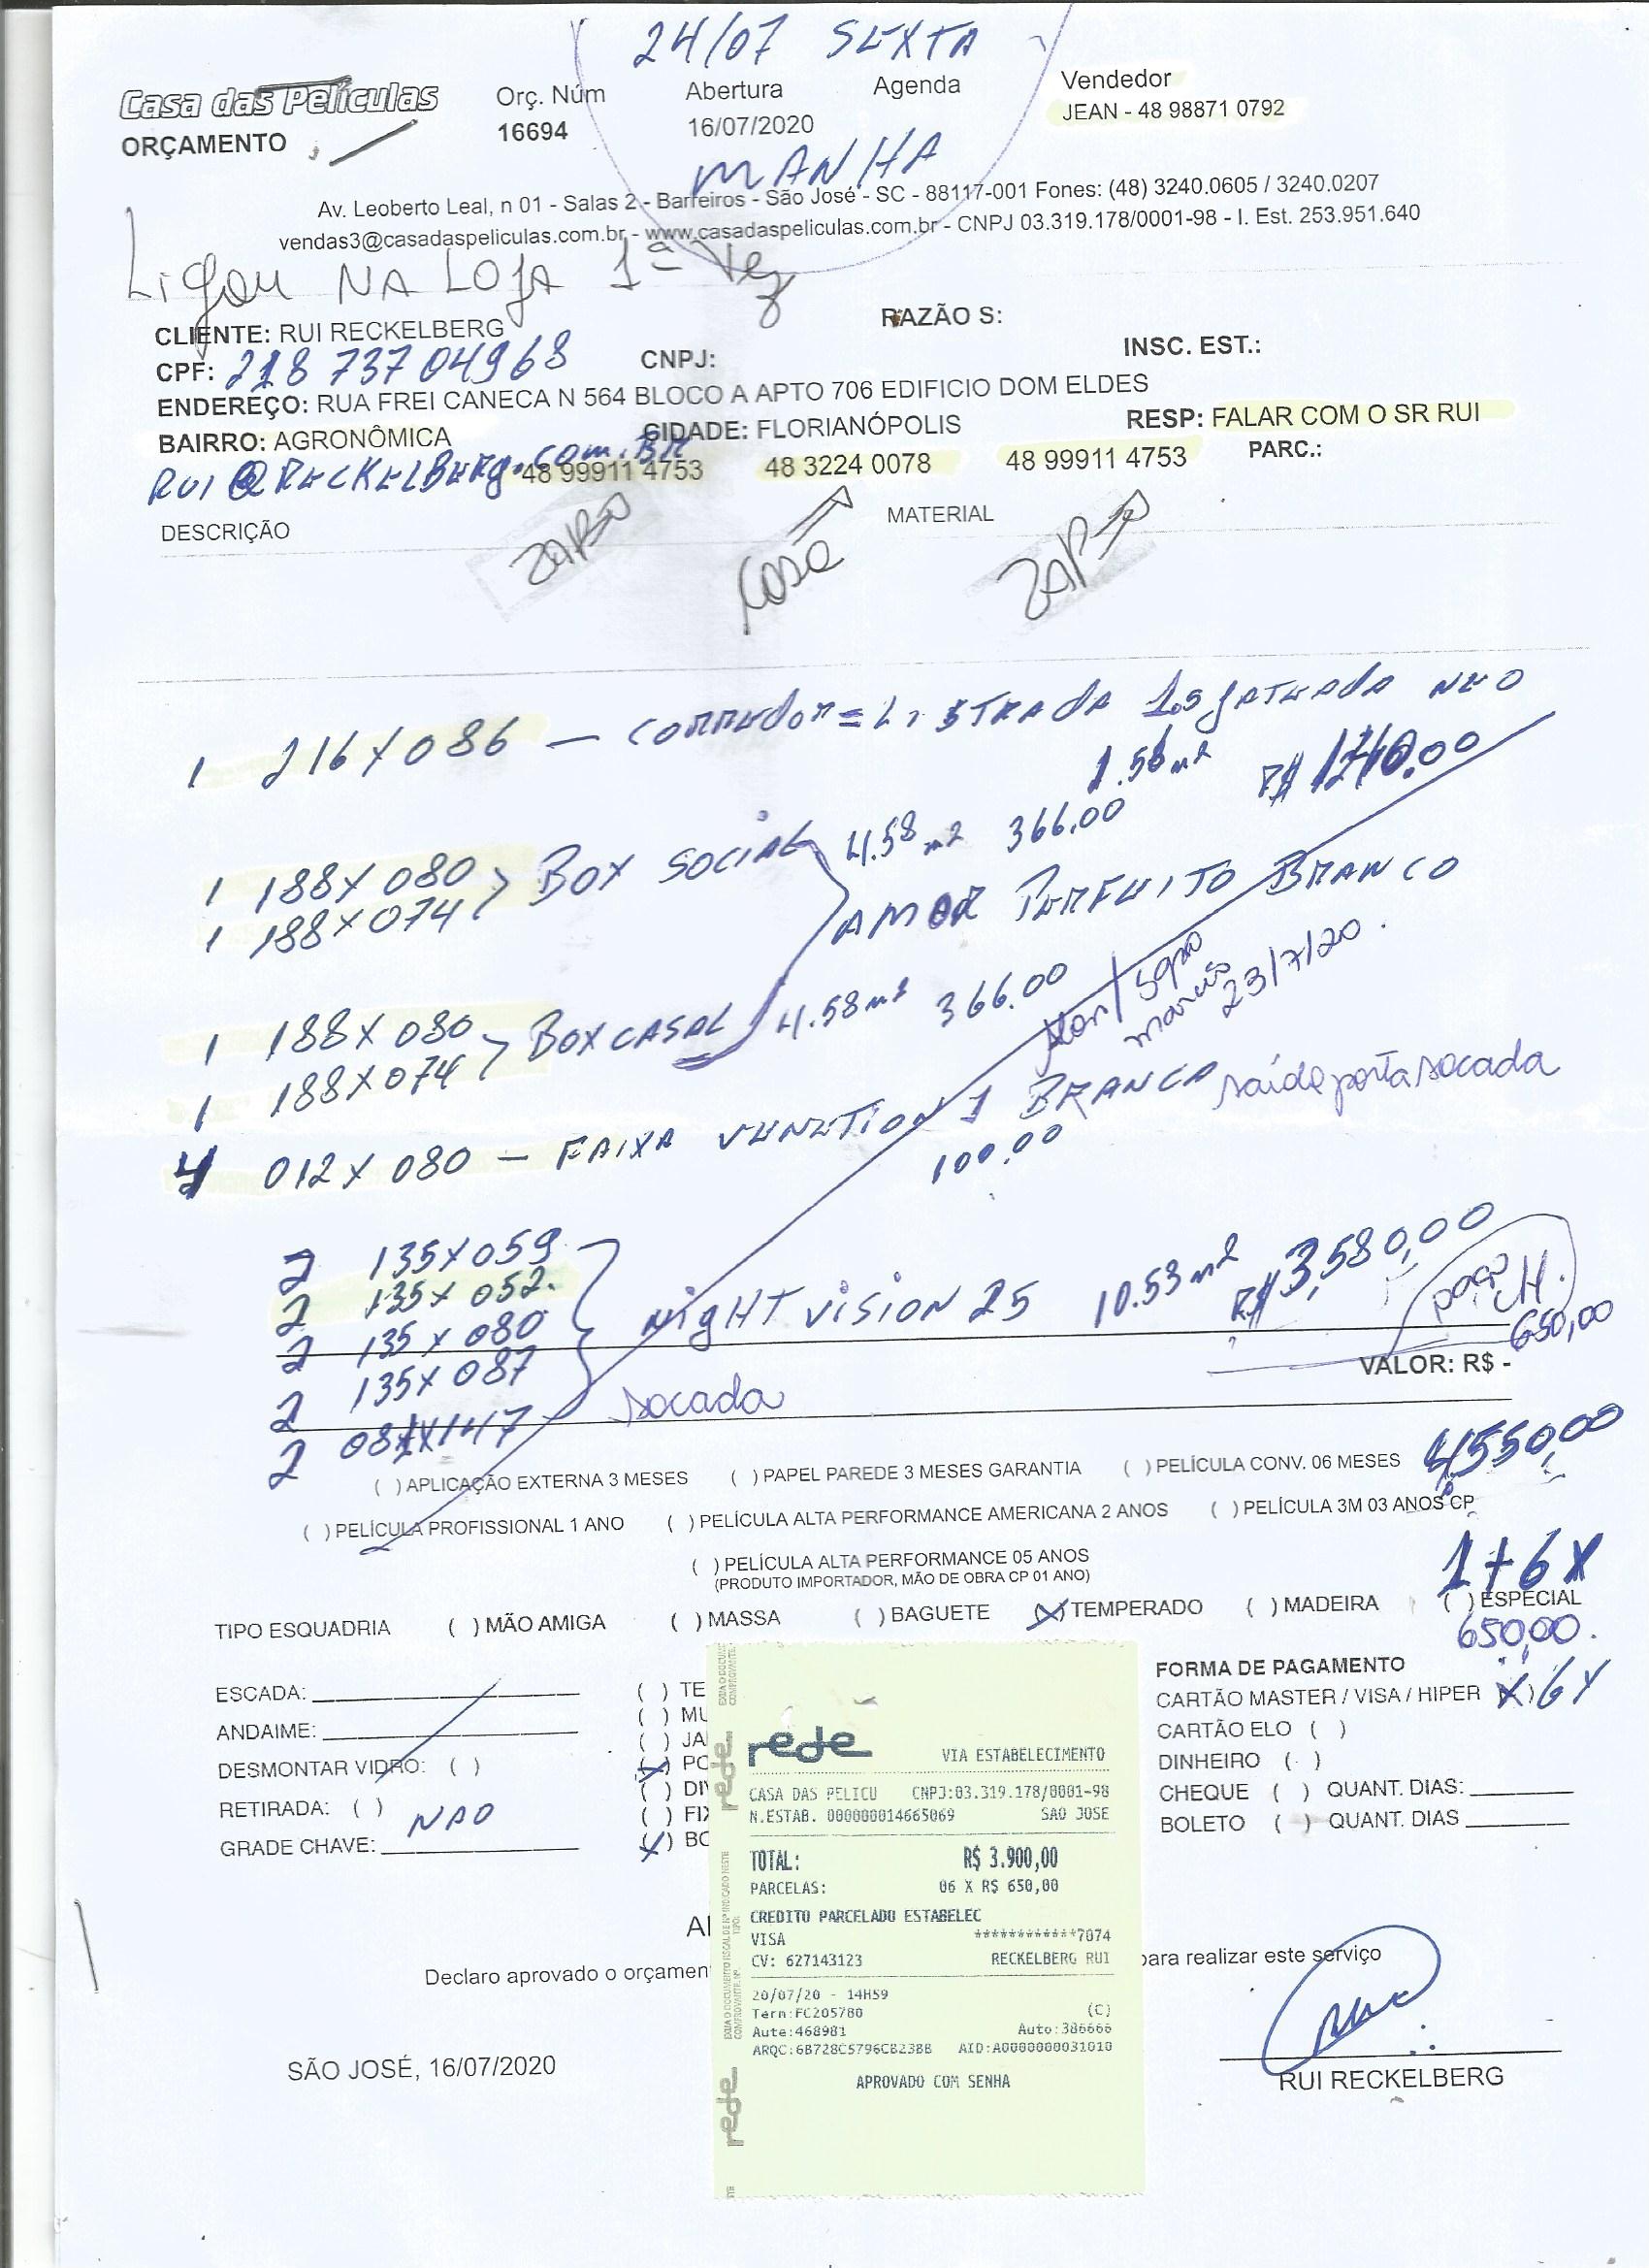 24/07 SEXTA
Casa das Películas
ORÇAMENTO
Orç. Núm
16694
Abertura
16/07/2020
Agenda
Vendedor
JEAN - 48 98871 0792
MANHA
Av. Leoberto Leal, n 01 - Salas 2 - Barreiros - São José - SC - 88117-001 Fones: (48) 3240.0605 / 3240.0207
vendas3@casadaspeliculas.com.br - www.casadaspeliculas.com.br - CNPJ 03.319.178/0001-98 - I. Est. 253.951.640
Ligou NA LOJA 1ª Vez
CLIENTE: RUI RECKELBERG
RAZÃO S:
CPF: 218 737 04968
CNPJ:
INSC. EST.:
ENDEREÇO: RUA FREI CANECA N 564 BLOCO A APTO 706 EDIFICIO DOM ELDES
BAIRRO: AGRONÔMICA
CIDADE: FLORIANÓPOLIS
RESP: FALAR COM O SR RUI
RUI@RECKELBERG.COM.BR
48 99911 4753
48 3224 0078
48 99911 4753
PARC.:
DESCRIÇÃO
ZAP
CASA
MATERIAL
ZAP
1 216X086 — CORREDOR = LISTRADA JATEADA NEO
1.58m² R$ 1740.00
1 188X080 > BOX SOCIAL 4.58m² 366.00
1 188X074
AMOR PERFEITO BRANCO
1 188X080 > BOX CASAL 4.58m² 366.00
1 188X074
marcus
23/7/20.
4 012X080 — FAIXA VENETION 1 BRANCA
saíde porta sacada
100.00
2 135X059
2 135X052.
2 135X080
2 135X087
2 084X147
NIGHT VISION 25 10.53m² R$ 3,580,00
sacada
CH.
650,00
VALOR: R$ -
4,550,00
( ) APLICAÇÃO EXTERNA 3 MESES ( ) PAPEL PAREDE 3 MESES GARANTIA ( ) PELÍCULA CONV. 06 MESES
( ) PELÍCULA PROFISSIONAL 1 ANO ( ) PELÍCULA ALTA PERFORMANCE AMERICANA 2 ANOS ( ) PELÍCULA 3M 03 ANOS CP
( ) PELÍCULA ALTA PERFORMANCE 05 ANOS
(PRODUTO IMPORTADOR, MÃO DE OBRA CP 01 ANO)
1+6X
TIPO ESQUADRIA ( ) MÃO AMIGA ( ) MASSA ( ) BAGUETE (X) TEMPERADO ( ) MADEIRA ( ) ESPECIAL
650,00.
ESCADA:
ANDAIME:
DESMONTAR VIDRO: ( )
RETIRADA: ( )
NAO
GRADE CHAVE:
( ) TE
( ) MU
( ) JA
(X) PO
( ) DI
( ) FIX
(X) BO
FORMA DE PAGAMENTO
CARTÃO MASTER / VISA / HIPER (X) 6X
CARTÃO ELO ( )
DINHEIRO ( )
CHEQUE ( ) QUANT. DIAS:
BOLETO ( ) QUANT. DIAS
rede
VIA ESTABELECIMENTO
CASA DAS PELICU CNPJ:03.319.178/0001-98
N.ESTAB. 000000014665069 SAO JOSE
TOTAL: R$ 3.900,00
PARCELAS: 06 X R$ 650,00
CREDITO PARCELADO ESTABELEC
VISA ************7074
CV: 627143123 RECKELBERG RUI
20/07/20 - 14H59
Term:FC205780 (C)
Aute:468981 Auto:386666
ARQC:6B728C5796CB23BB AID:A0000000031010
APROVADO COM SENHA
rede
rede
Declaro aprovado o orçamen
para realizar este serviço
SÃO JOSÉ, 16/07/2020
RUI RECKELBERG